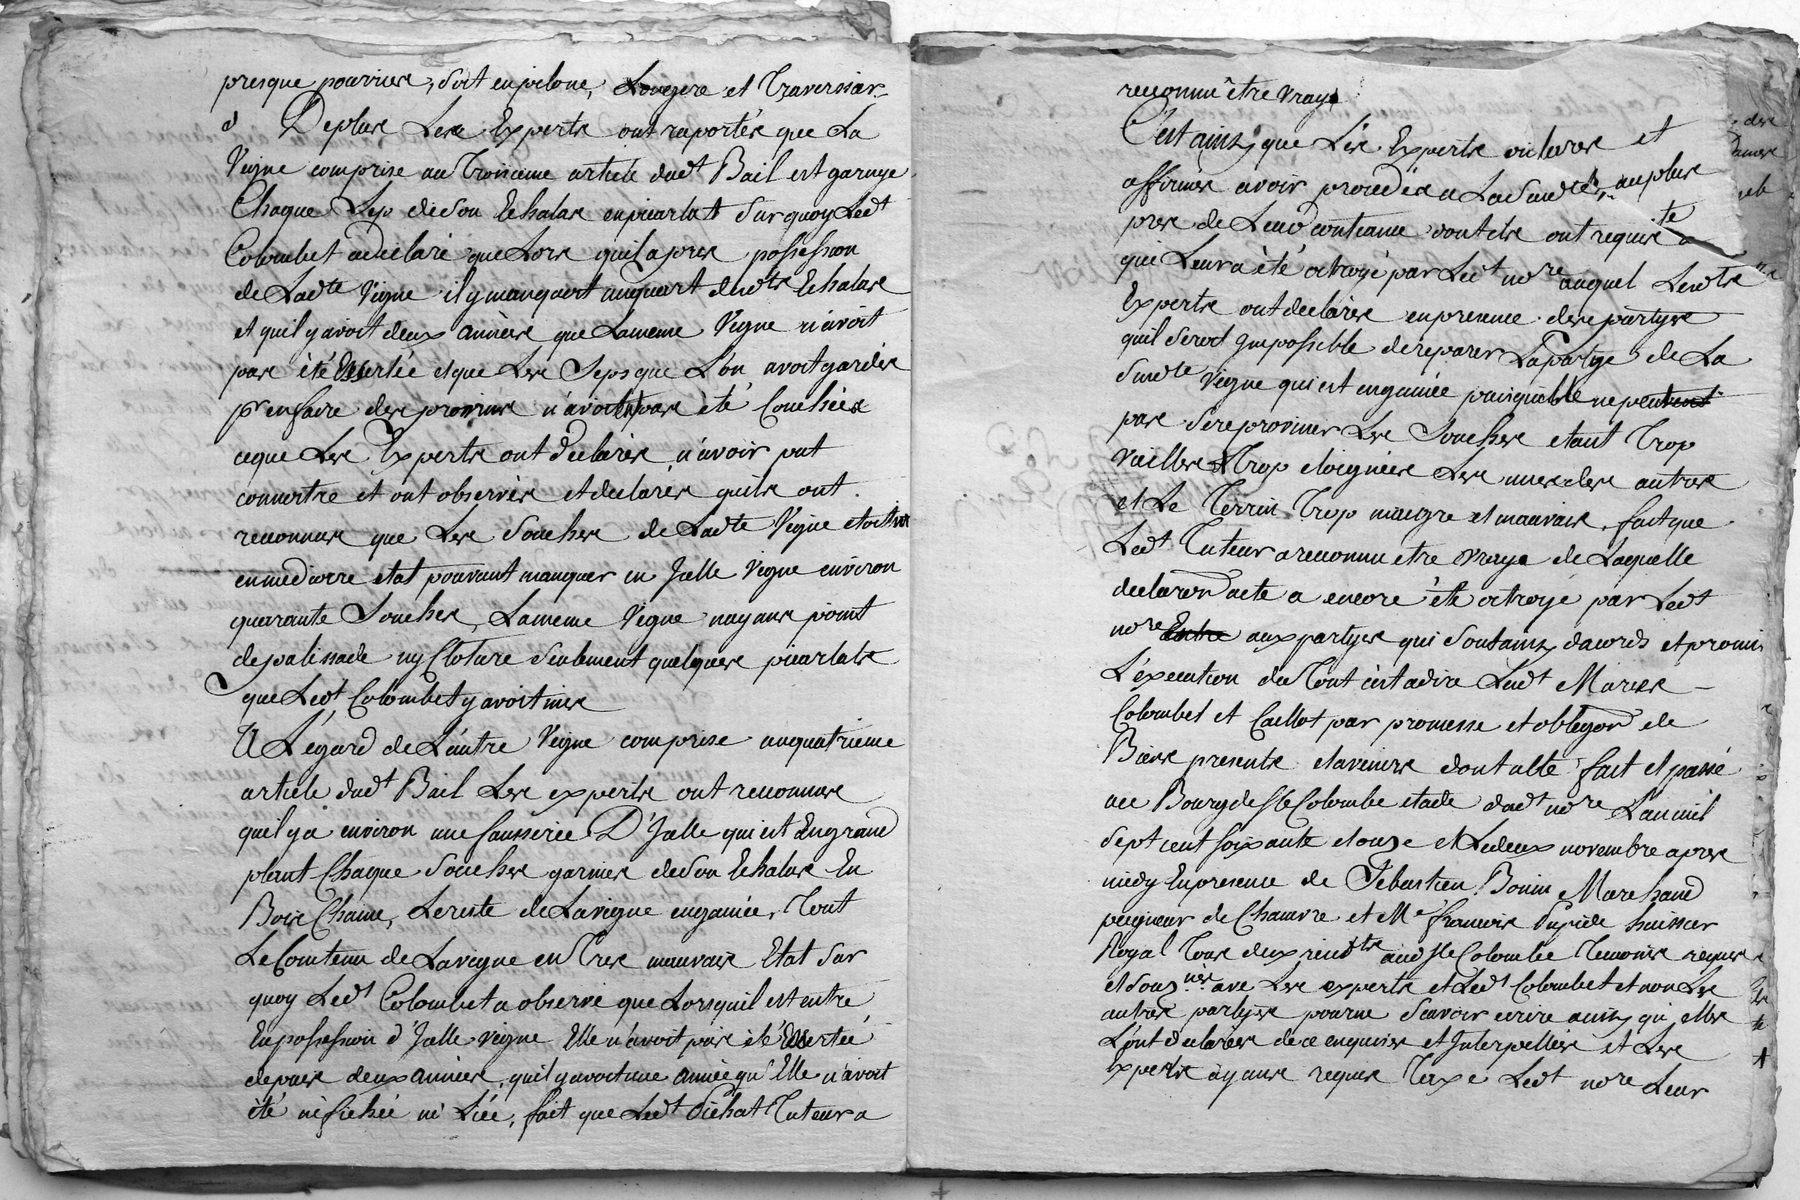 presque pourries, soit en pilone, Lougere et Traversier
Deplus Les Experts ont raportés que La
Vigne comprise au Troisieme article dudt Bail est garnye
Chaque Sep de son Echalas en picarlat sur quoy Ledt
Colombet a declaré que Lors quil a pris possession
de Ladte Vigne il y manquoit un quart desdts Echalas
et quil y avoit deux années que La meme Vigne n'avoit
pas été Essertée et que Les Seps que L'on avoit gardés
pr en faire des provins n'avoient pas été Couchées
ceque Les Experts ont declarés n'avoir put
connoitre et ont observés et declarés quils ont
reconnus que Les Souches de Ladte Vigne etoient
en mediocre etat pouvant manquer en Jcelle Vigne environ
quarante Souches, La meme Vigne n'ayans point
de palissade ny Cloture seulement quelques picarlats
que Ledt Colombet y avoit mis
A L'égard de L'autre Vigne comprise au quatrieme
article dudt Bail Les experts ont reconnus
quil y a environ une fausserée D'Jcelle qui est En grand
plant Chaque Souches garnies de son Echalas En
Bois Chaine, Le reste de La vigne engamée, Tout
Le Contenu de La vigne en Tres mauvais Etat sur
quoy Ledt Colombet a observé que Lorsquil est entré
En possession d'Jcelle vigne Elle n'avoit pas été Essertée
depuis deux années, quil y avoit une année qu'Elle n'avoit
été ni fichée ni Liée, fait que Ledt Dichat Tuteur a
reconnu être vraye
C'est ainsy que Les Experts ont clos et
affirmés avoir procedés a La Susdte au plus
pres de Leur Conscience dont ils ont requis
qui Leur a été octroyé par Ledt nore auquel Lesdts
Experts ont declarés en presence des partyes
quil Seroit Jmpossible de reparer La partye de La
Susdte Vigne qui est engamée puisquelle ne peut
pas Se reprovinier Les Souches etant Trop
Vieilles et Trop eloignées Les unes des autres
et Le Terrin Trop maigre et mauvais, fait que
Ledt Tuteur a reconnu etre vraye de Laquelle
declaron acte a encore été octroyé par Ledt
nore Entre aux partyes qui Sont ainsy dacords et promis
L'éxecution du Tout c'est a dire Lesdt Mares
Colombet et Caillot par promesse et obligon de
Biens presents et avenirs dont acte fait et passé
au Bourg de Ste Colombe etude dudt nore L'an mil
sept cent soixante et onze et Le deux novembre apres
midy En presence de Sebastien Bonin Marchand
peigneur de Chanvre et Me francois Dupide huissier
Royal Tous deux residts audt Ste Colombe Temoins requis
et Sousnés avec Les experts et Ledt Colombet et non Les
autres partyes pour ne Scavoir ecrire ainsy qu'elles
L'ont declarées de ce enquises et Jnterpellées et Les
Experts ayans requis Taxe Ledt nore Leur